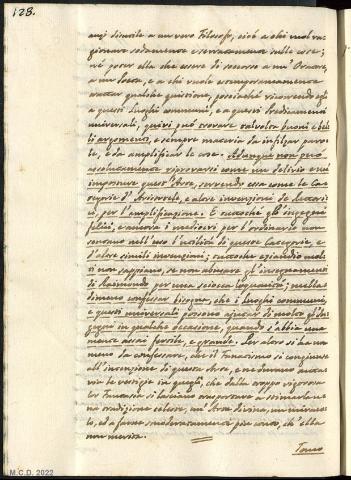 128.
anzi disutile a un vero Filosofo, cioè a chi vuol ra=
gionare sodamente e serratamente sulle cose;
nè poter ella che essere di soccorso a un' Oratore,
a un Poeta, e a chi vuole estemporaneamente
trattar qualche quistione, posciachè ricorrendo egli
a questi Luoghi communi, e a questi Predicamenti
universali, quivi può trovare talvolta buoni e bel=
li argomenti, e sempre materia da infilzar paro=
le, e da amplificar le cose. Adunque non può
assolutamente riprovarsi come un delirio e una
impostura quest' Arte, servendo essa come le Ca=
tegorie d' Aristotele, e altre invenzioni de Rettori=
ci, per l' amplificazione. E tuttochè gl' ingegni
felici, e ancora i mediocri per l' ordinario non
sentano nell' uso l' utilità di queste Categorie, e
d' altre simili invenzioni; tuttochè eziandio molti
si non sappiano, se non abusare gl' insegnamenti
di Raimondo per una sciocca loquacità; nulla
dimeno confessar bisogna, che i luoghi communi, e
questi universali possono ajutar di molto gl' In=
gegni in qualche occasione, quando s' abbia una
mente assai fertile, e grande. Per altro si ha no=
meno da confessare, che il fanatismo si congiunse
all' invenzione di quest' Arte, e ne durino tutta=
via le vestigie in quegli, che dalla troppo vigorosa
lor Fantasia si lasciano trasportare a stimarla u=
na tradizione celeste, un' Arte divina, un miraco=
lo, e a farne smoderatamente più conto, ch' ella
non merita.
Tomo
M.C.D. 2022